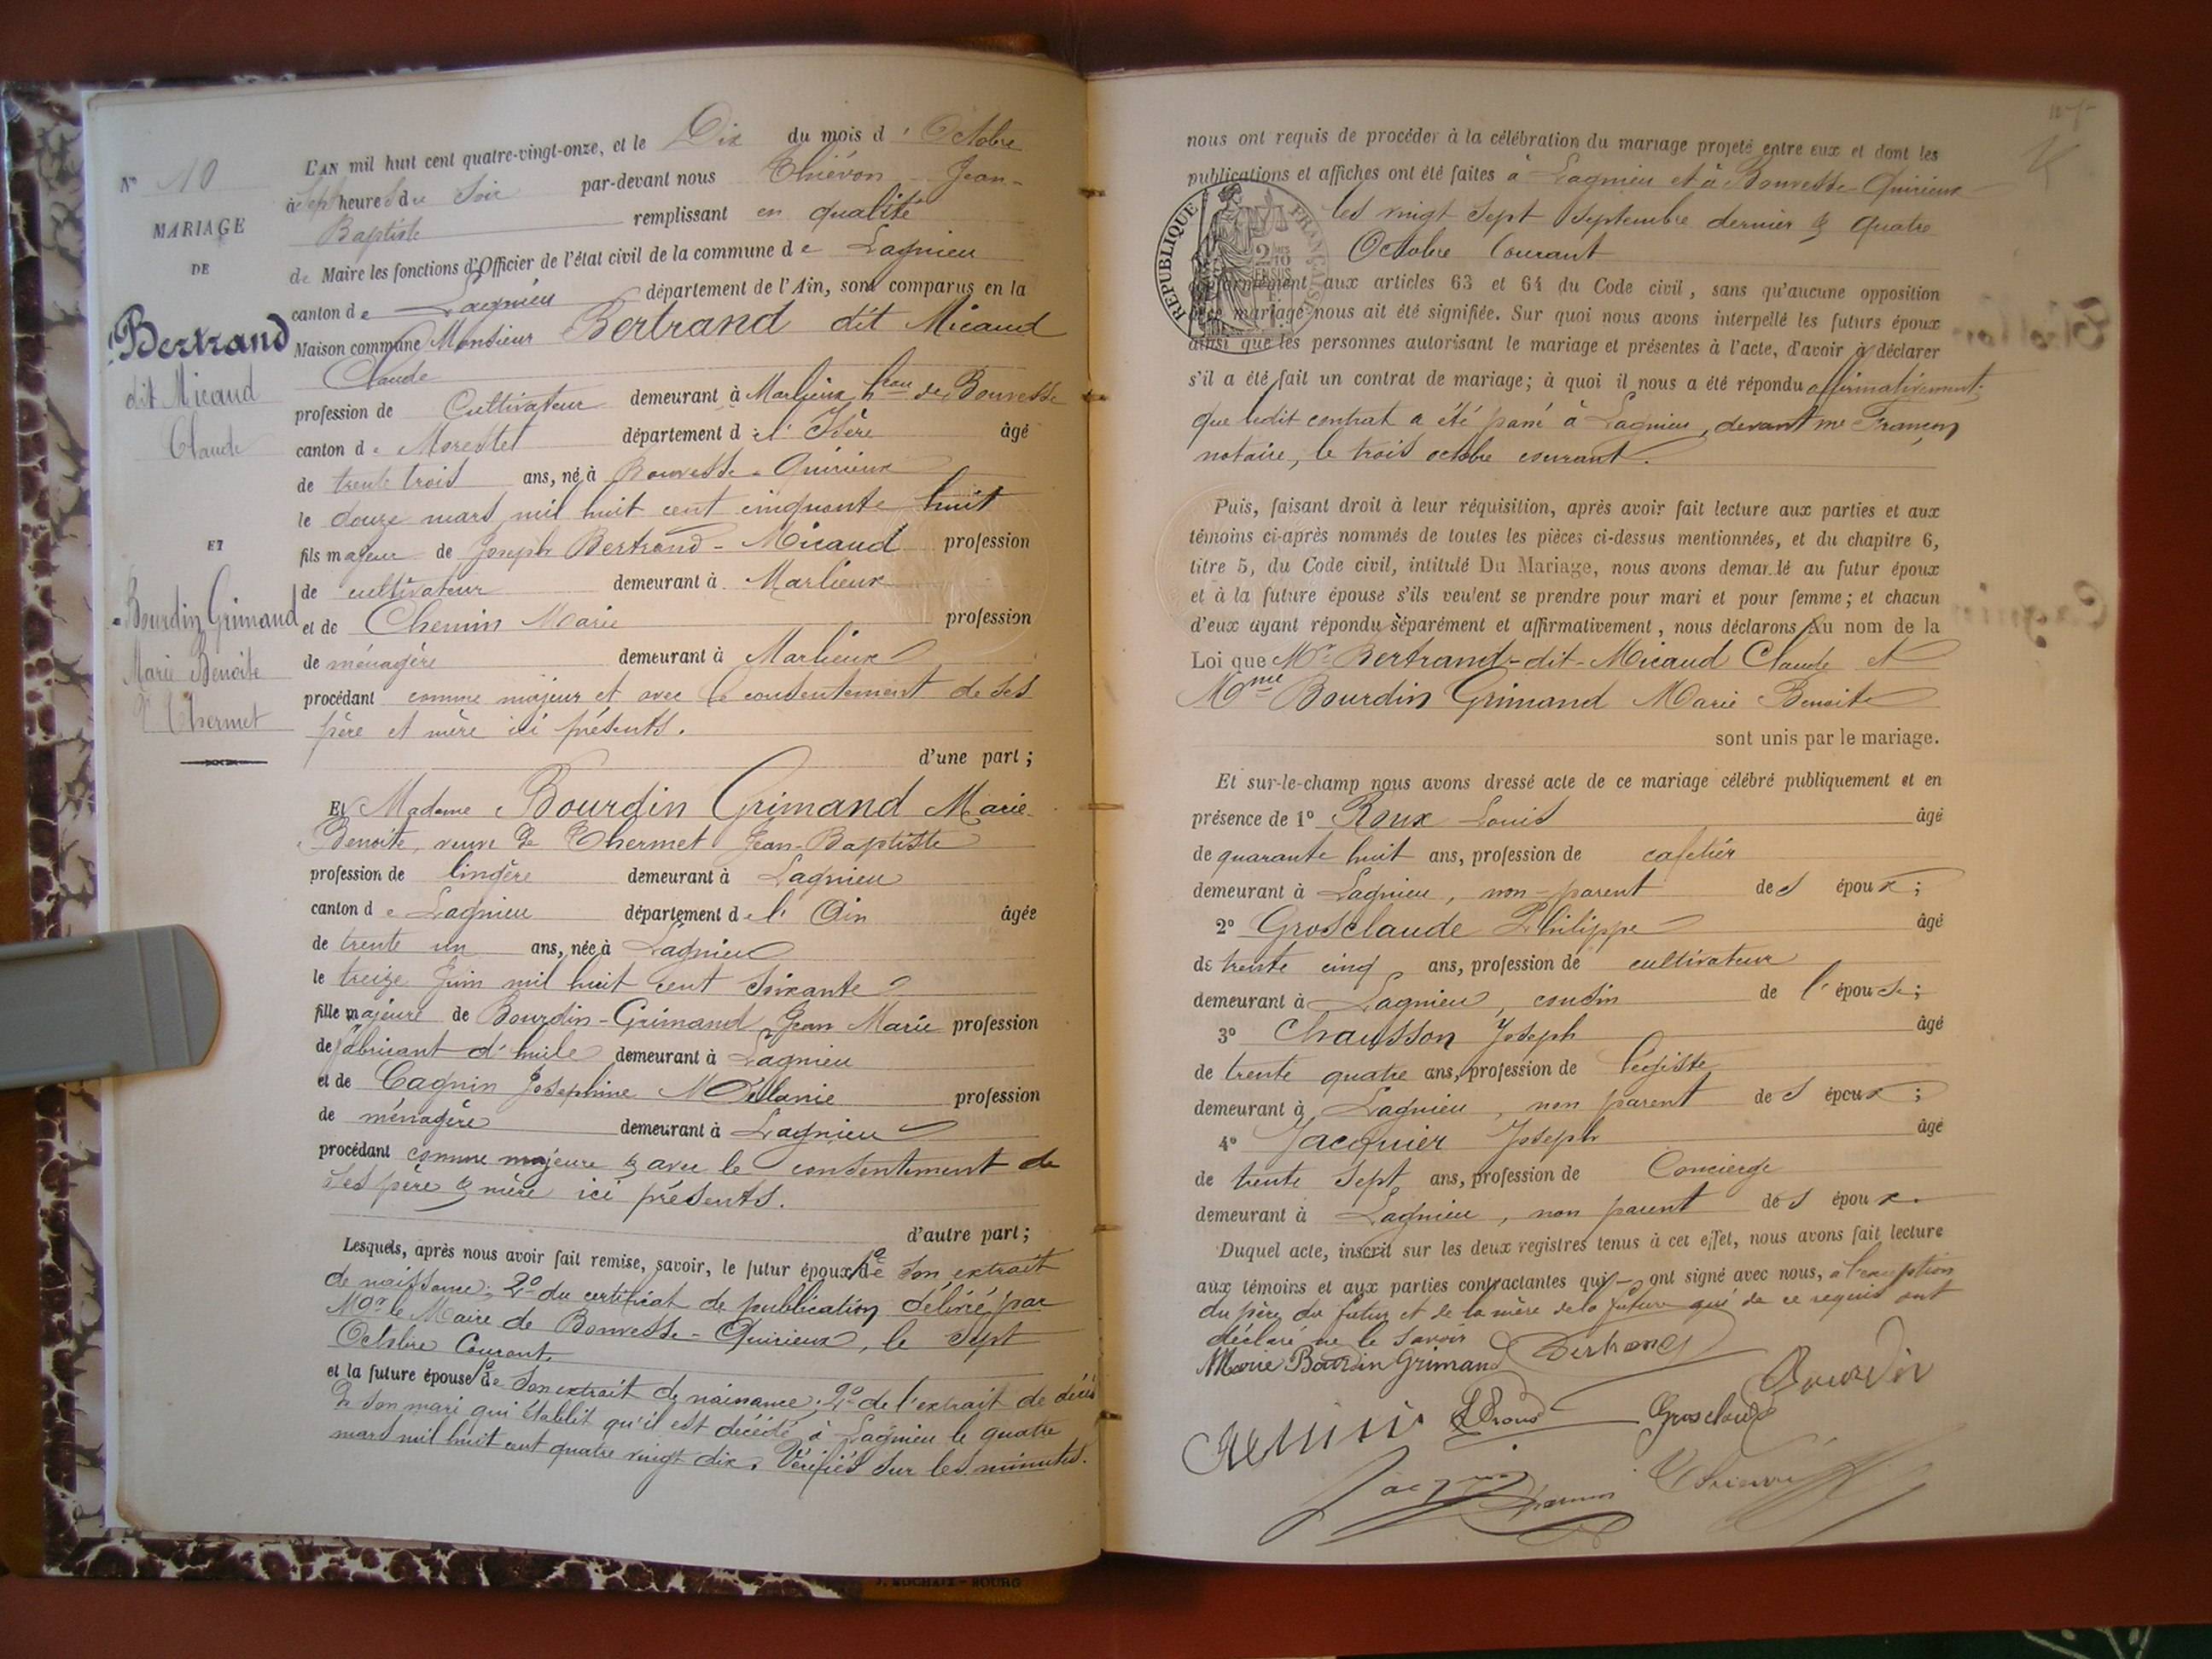 L'AN mil huit cent quatre-vingt-onze, et le Dix du mois d' Octobre
à sept heures du Soir par-devant nous Thiévon Jean-
Baptiste remplissant en qualité
de Maire les fonctions d'Officier de l'état civil de la commune de Lagnieu
canton de Lagnieu département de l'Ain, sont comparus en la
Maison commune Monsieur Bertrand dit Micaud
Claude
profession de Cultivateur demeurant à Marlieux hau de Bouvesse
canton de Morestel département de l'Isère âgé
de trente trois ans, né à Bouvesse-Quirieux
le douze mars mil huit cent cinquante huit
fils majeur de Joseph Bertrand-Micaud profession
de cultivateur demeurant à Marlieux
et de Chemin Marie profession
de ménagère demeurant à Marlieux
procédant comme majeur et avec le consentement de ses
père et mère ici présents.
d'une part;
Et Madame Bourdin Grimand Marie
Benoite, veuve de Thermet Jean-Baptiste
profession de lingère demeurant à Lagnieu
canton de Lagnieu département de l'Ain âgée
de trente un ans, née à Lagnieu
le treize Juin mil huit cent soixante
fille majeure de Bourdin-Grimand Jean Marie profession
de fabricant d'huile demeurant à Lagnieu
et de Cagnin Josephine Mélanie profession
de ménagère demeurant à Lagnieu
procédant comme majeure & avec le consentement de
ses père & mère ici présents.
d'autre part;
Lesquels, après nous avoir fait remise, savoir, le futur époux 1° de son extrait
de naissance; 2° du certificat de publication délivré par
Mr le Maire de Bouvesse-Quirieux, le sept
Octobre Courant.
et la future épouse 1° de son extrait de naissance; 2° de l'extrait de décès
de son mari qui établit qu'il est décédé à Lagnieu le quatre
mars mil huit cent quatre vingt dix. Vérifiés sur les minutes.
N° 10
MARIAGE
DE
Bertrand
dit Micaud
Claude
ET
Bourdin Grimand
Marie Benoite
Vve Thermet
J. ROCHAIX - BOURG
nous ont requis de procéder à la célébration du mariage projeté entre eux et dont les
publications et affiches ont été faites à Lagnieu et à Bouvesse-Quirieux
les vingt sept Septembre dernier & quatre
Octobre Courant
conformément aux articles 63 et 64 du Code civil, sans qu'aucune opposition
à ce mariage nous ait été signifiée. Sur quoi nous avons interpellé les futurs époux
ainsi que les personnes autorisant le mariage et présentes à l'acte, d'avoir à déclarer
s'il a été fait un contrat de mariage; à quoi il nous a été répondu affirmativement,
que ledit contrat a été passé à Lagnieu, devant me Françon
notaire, le trois octobre courant.
RÉPUBLIQUE FRANÇAISE
2/10 EN SUS
Puis, faisant droit à leur réquisition, après avoir fait lecture aux parties et aux
témoins ci-après nommés de toutes les pièces ci-dessus mentionnées, et du chapitre 6,
titre 5, du Code civil, intitulé Du Mariage, nous avons demandé au futur époux
et à la future épouse s'ils veulent se prendre pour mari et pour femme; et chacun
d'eux ayant répondu séparément et affirmativement, nous déclarons Au nom de la
Loi que Mr Bertrand-dit-Micaud Claude et
Mme Bourdin Grimand Marie Benoite
sont unis par le mariage.
Et sur-le-champ nous avons dressé acte de ce mariage célébré publiquement et en
présence de 1° Roux Louis âgé
de quarante huit ans, profession de cafetier
demeurant à Lagnieu, non-parent des époux;
2° Grosclaude Philippe âgé
de trente cinq ans, profession de cultivateur
demeurant à Lagnieu, cousin de l'épouse;
3° Chausson Joseph âgé
de trente quatre ans, profession de légiste
demeurant à Lagnieu, non parent des époux;
4° Jacquier Joseph âgé
de trente sept ans, profession de Concierge
demeurant à Lagnieu, non parent des époux.
Duquel acte, inscrit sur les deux registres tenus à cet effet, nous avons fait lecture
aux témoins et aux parties contractantes qui ont signé avec nous, à l'exception
du père du futur et de la mère de la future qui de ce requis ont
déclaré ne le savoir
Marie Bourdin Grimand Bertrand
Bourdin
L Roux Grosclaude